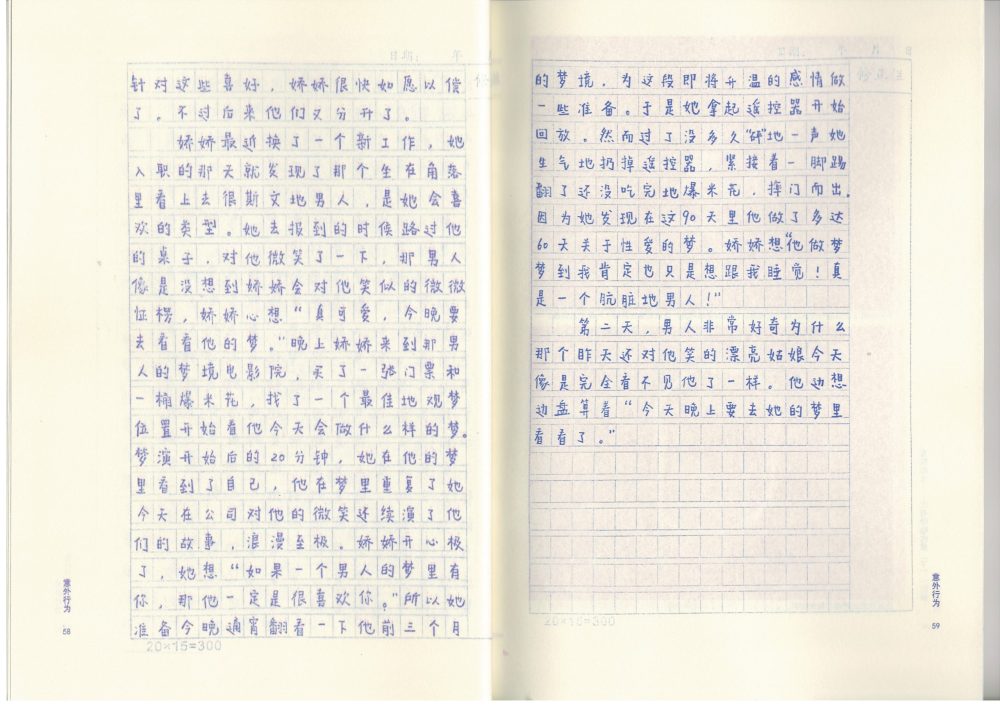 日期： 年
针对这些喜好，娇娇很快如愿以偿
了。不过后来他们又分开了。
娇娇最近换了一个新工作，她
入职的那天就发现了那个坐在角落
里看上去很斯文地男人，是她会喜
欢的类型。她去报到的时候路过他
的桌子，对他微笑了一下，那男人
像是没想到娇娇会对他笑似的微微
怔楞，娇娇心想“真可爱，今晚要
去看看他的梦。”晚上娇娇来到那男
人的梦境电影院，买了一张门票和
一桶爆米花，找了一个最佳地观梦
位置开始看他今天会做什么样的梦。
梦演开始后的20分钟，她在他的梦
里看到了自己，他在梦里重复了她
今天在公司对他的微笑还续演了他
们的故事，浪漫至极。娇娇开心极
了，她想“如果一个男人的梦里有
你，那他一定是很喜欢你。”所以她
准备今晚通宵翻看一下他前三个月
20×15=300
意外行为
58
日期： 年 月 日
的梦境，为这段即将升温的感情做
一些准备。于是她拿起遥控器开始
回放。然而过了没多久“砰”地一声她
生气地扔掉遥控器，紧接着一脚踢
翻了还没吃完地爆米花，摔门而出。
因为她发现在这90天里他做了多达
60天关于性爱的梦。娇娇想“他做梦
梦到我肯定也只是想跟我睡觉！真
是一个肮脏地男人！”
第二天，男人非常好奇为什么
那个昨天还对他笑的漂亮姑娘今天
像是完全看不见他了一样。他边想
边盘算着“今天晚上要去她的梦里
看看了。”
20×15=300
意外行为
59